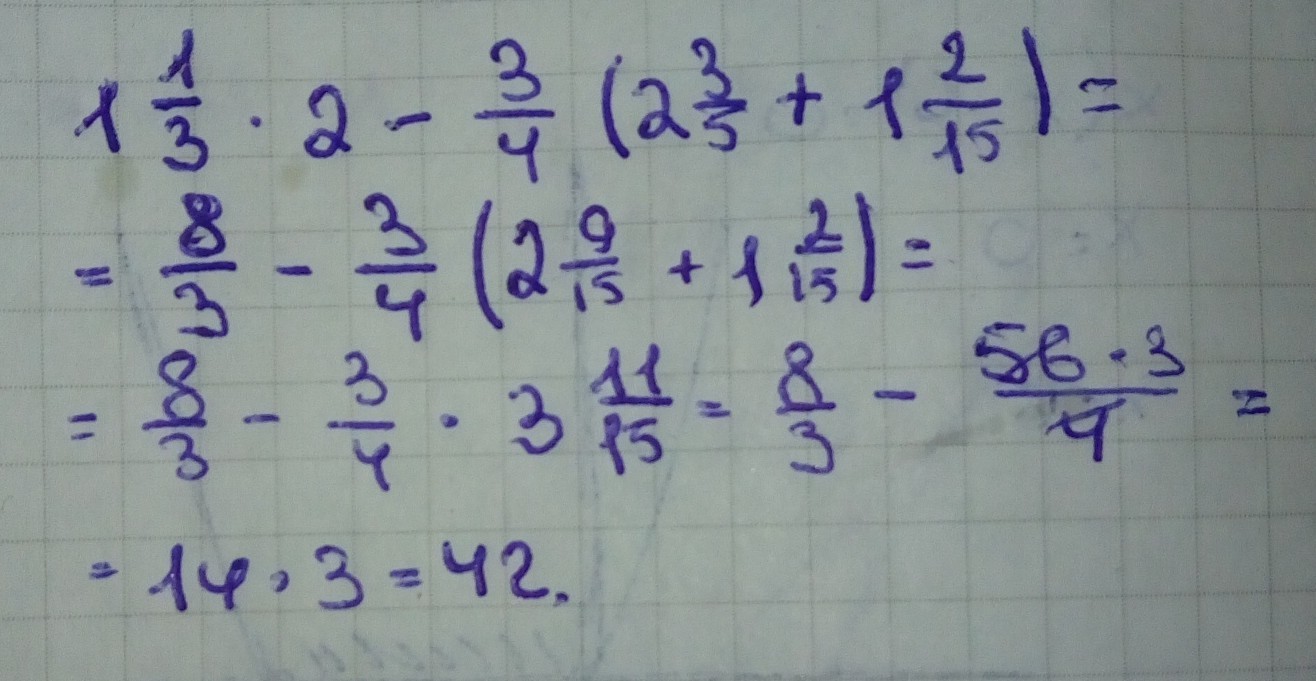 1 1/3 · 2 - 3/4 (2 3/5 + 1 2/15) =
= 8/3 - 3/4 (2 9/15 + 1 2/15) =
= 8/3 - 3/4 · 3 11/15 = 8/3 - 56 · 3/4 =
= 14 · 3 = 42.